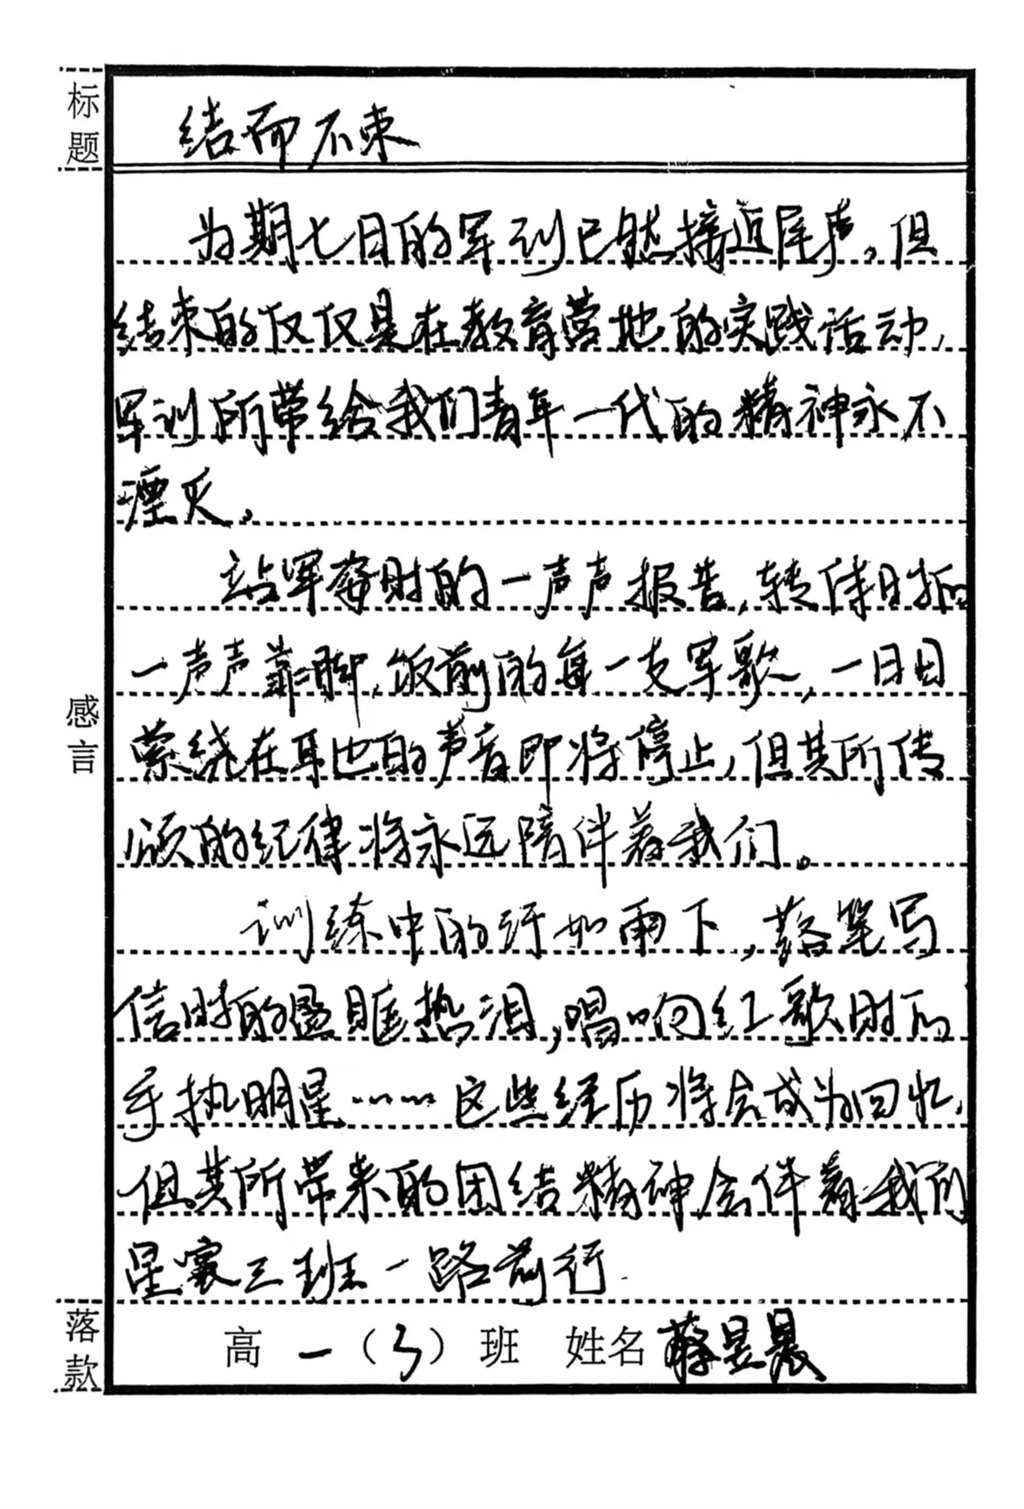 标题
结而不束
为期七日的军训已然接近尾声。但
结束的仅仅是在教育营地的实践活动,
军训所带给我们青年一代的精神永不
湮灭。
站军姿时的一声声报告,转体时的
一声声靠脚,饭前的每一支军歌,一日日
萦绕在耳边的声音即将停止,但其所传
颂的纪律将永远陪伴着我们。
训练中的汗如雨下,落笔写
信时的盈眶热泪,唱响红歌时的
手执明星……这些经历将会成为回忆,
但其所带来的团结精神会伴着我们
星寰三班一路前行.
感言
落款
高一(3)班 姓名 蔡昱晨